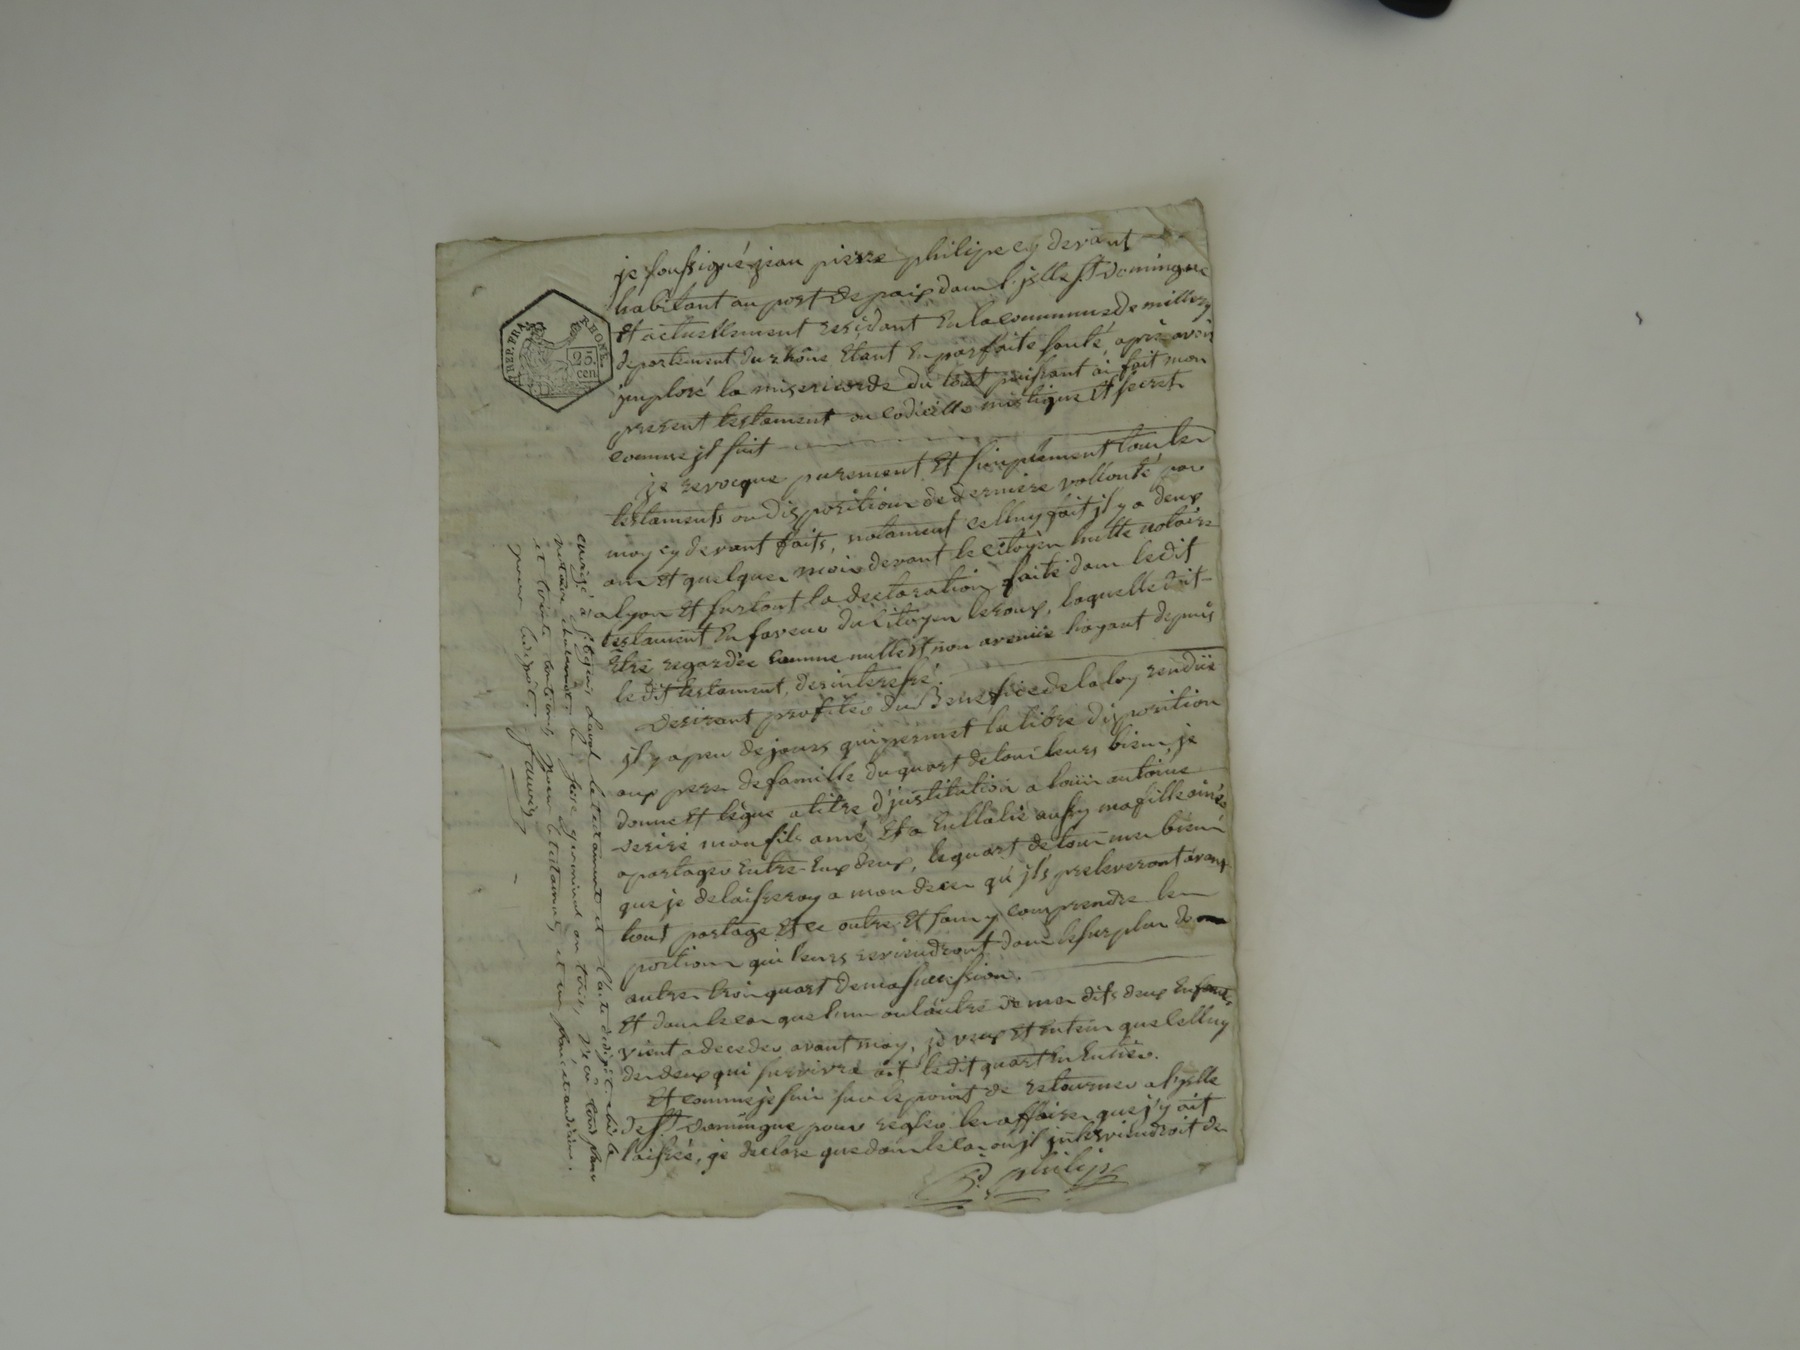 je soussigné jean pierre philipe cy devant
habitant au port de paix dans l'jslle St Domingue
et actuellement residant en la commune de millery
departement du rhône etant en parfaite santé, après avoir
jmploré la misericorde du tout puissant ai fait mon
present testament ou codicille mistique et secret
comme jl suit
je revoque purement et simplement tous les
testaments ou dispositions de derniere vollonté par
moy cy devant faits, notament celluy fait jl y a deux
ans et quelques mois devant le citoyen notaire
a lyon et surtout la declaration faite dans ledit
testament en faveur du citoyen leroux, laquelle doit
être regardée comme nulle et non avenüe l'ayant depuis
ledit testament, desinteressé.
desirant profiter du Benefice de la loy rendüe
jl y a peu de jours qui permet la libre disposition
aux peres de famille du quart de tous leurs biens, je
donne et lègue a titre d'justitution a loüis antoine
mon fils ainé et a Eullalie aussy ma fille ainée
a partager entre eux deux, le quart de tous mes biens
que je delaisseray a mon deces qu'jls preleveront avant
tout partage et ce outre et sans y comprendre les
portions qui leurs reviendront dans le surplus de
autres trois quart de ma succession.
et dans le cas que l'un ou l'autre de mes dits deux Enfants
vient a deceder avant moy, je veux et entens que celluy
des deux qui survivra ait ledit quart en entier.
et comme je suis sur le point de retourner a l'jslle
de St domingue pour regler les affaires que j'y ait
laissée, je declare que dans le cas ou jl jnterviendroit de
philipe
REP. FRA.
RHONE.
25
cen.
le testament et l'acte de dépôt chés le
notaire le germinal an
et trente centimes pour le testament et un franc et
pour le dépôt.